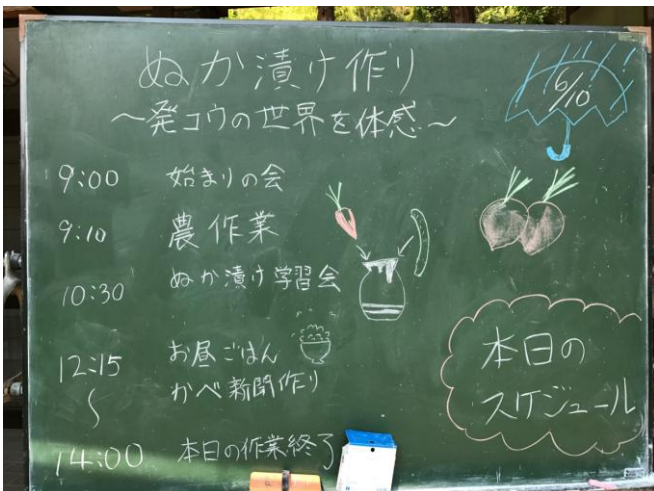 ぬか漬け作り
～発コウの世界を体感～
6/10
9:00 始まりの会
9:10 農作業
10:30 ぬか漬け学習会
12:15 お昼ごはん
かべ新聞作り
〜
14:00 本日の作業終了
本日の
スケジュール